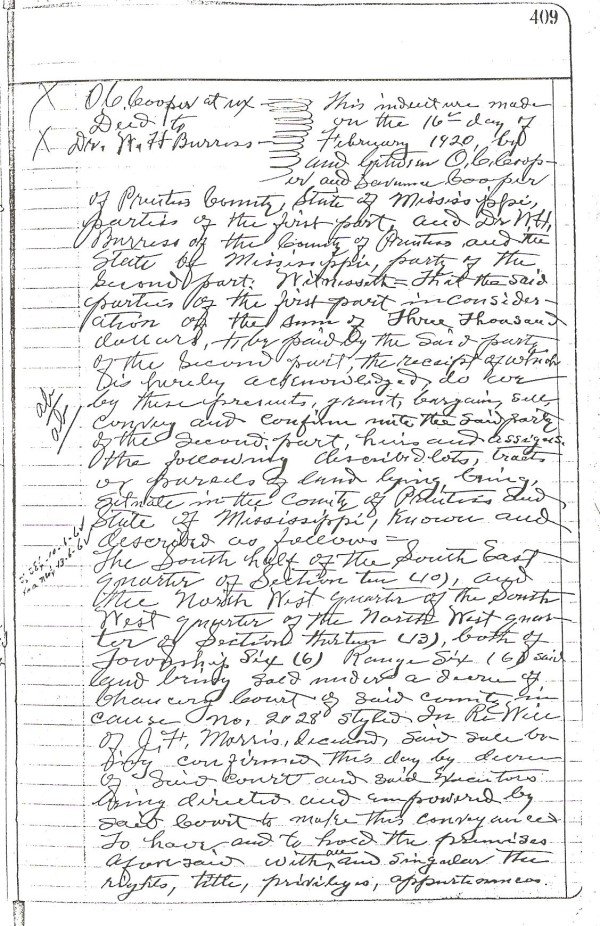 409
X O.C. Cooper et ux
Deed to
X Dr. W.H. Burress
This indenture made
on the 16th day of
February 1920, by
and between O.C. Coop-
er and Cooper
of Prentiss County, State of Mississippi,
parties of the first part, and Dr. W.H.
Burress of the County of Prentiss and the
State of Mississippi, party of the
Second part. Witnesseth = That the said
parties of the first part in consider-
ation of the sum of Three Thousand
dollars, to be paid by the said party
of the Second part, the receipt of which
is hereby acknowledged, do
by these presents, grant, bargain, sell,
convey and confirm unto the said party
of the Second part, heirs and assigns.
the following described lots, tracts
or parsels of land lying, being,
situate in the County of Prentiss and
State of Mississippi, Known and
described as follows =
The South half of the South East
quarter of Section ten (10), and
the North West quarter of the South
West quarter of the North West quar-
ter of Section thirteen (13), both of
Township Six (6) Range Six (6) said
land being sold under a decree of
Chancery Court of said county in
cause no. 2028 styled In Re Will
of J.H. Morris, deceased, said sale
confirmed this day by decree
of said court and said Executors
being directed and empowered by
said Court to make this conveyance
To have, and to hold the premises
aforesaid with all and singular the
rights, title, privileges, appurtenances.